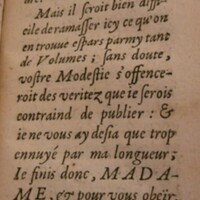 Mais il seroit bien diffi-
cile de ramasser icy ce qu'on
en trouue espars parmy tant
de Volumes ; sans doute,
vostre Modestie s'offence-
roit des veritez que ie serois
contraind de publier : &
ie ne vous ay desia que trop
ennuyé par ma longueur ;
Ie finis donc, MADA-
ME, et pour vous obeïr